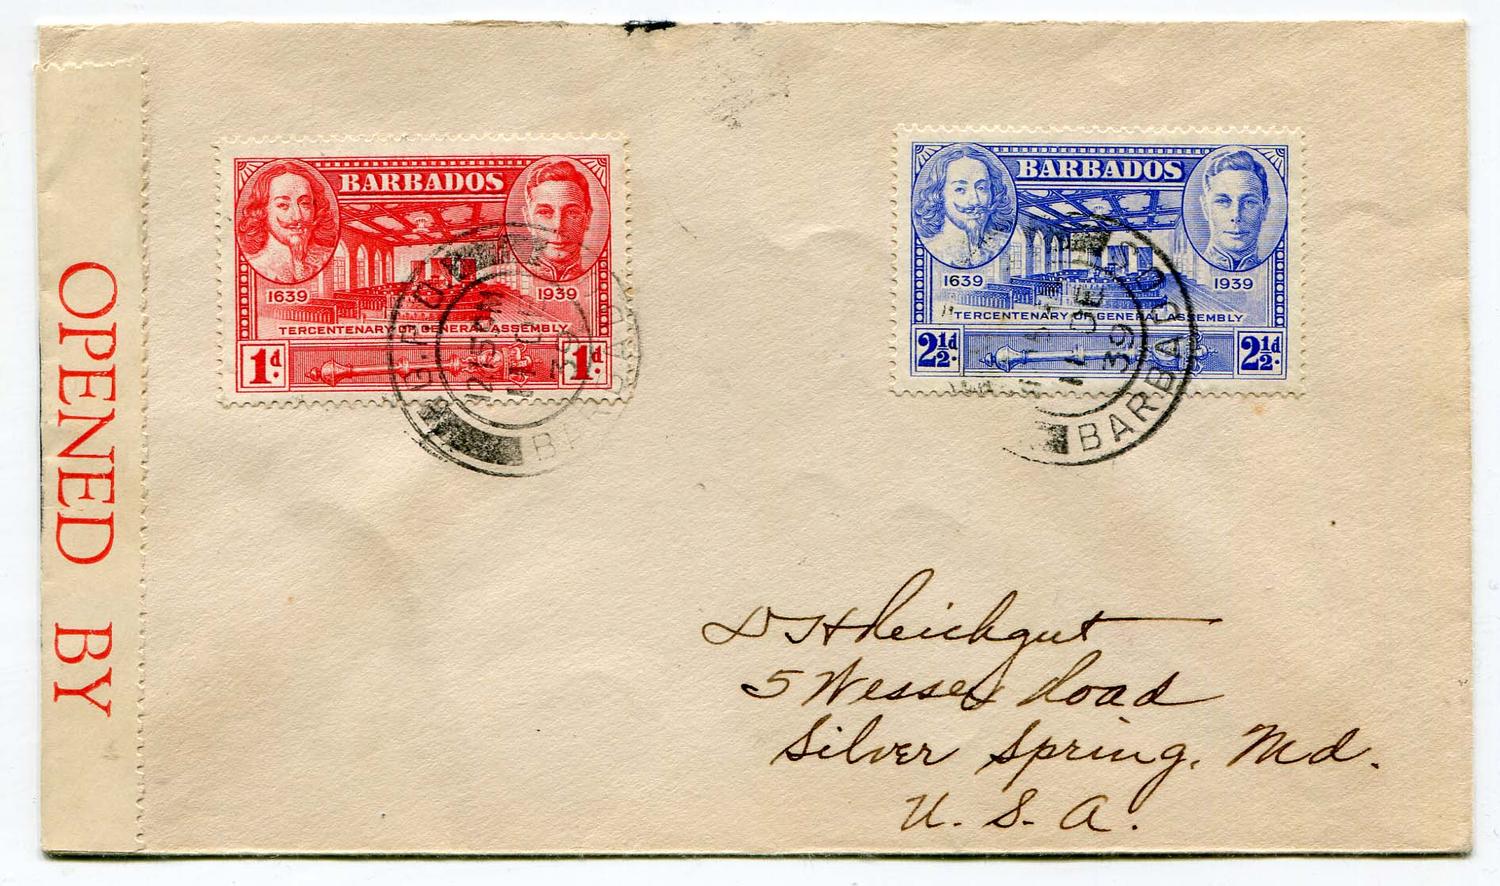 OPENED BY
BARBADOS
1639 1939
TERCENTENARY OF GENERAL ASSEMBLY
1d. 1d.
G.P.O.
BARBADOS
39
BARBADOS
1639 1939
TERCENTENARY OF GENERAL ASSEMBLY
2½d. 2½d.
14 DE
39
BARBADO
D H Reichgut
5 Wessex Road
Silver Spring, Md.
U. S. A.